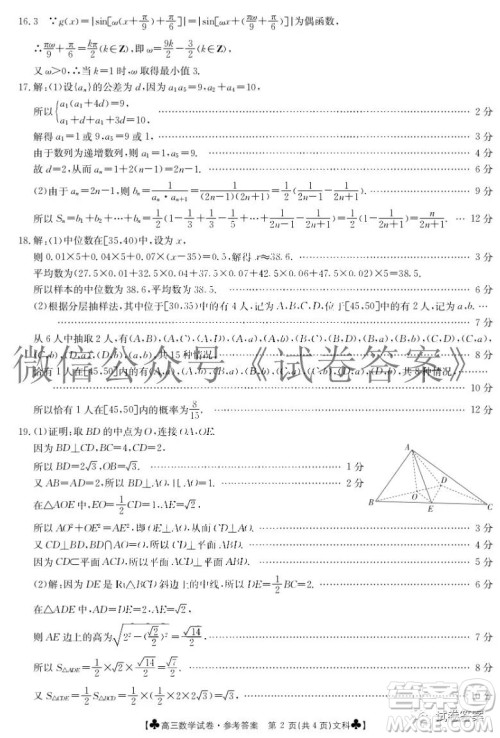 16.3 ∵g(x)=|sin[ω(x+π/9)+π/6]|=|sin(ωx+πω/9+π/6)|为偶函数,
∴πω/9+π/6=kπ/2(k∈Z),即ω=9k/2-3/2(k∈Z).
又ω>0,∴当k=1时,ω取得最小值3.
17.解:(1)设{aₙ}的公差为d,因为a₁a₅=9,
所以{a₁(a₁+4d)=9, a₁+d+a₁+3d=10, 2分
解得a₁=9或a₁=1. 3分
由于数列为递增数列,则a₁=1,a₅=9. 4分
故d=2,从而aₙ=1+2(n-1)=2n-1. 6分
(2)由于aₙ=2n-1,则bₙ=1/(aₙ·aₙ₊₁)=1/((2n-1)(2n+1))=1/2(1/(2n-1)-1/(2n+1)). 9分
所以Sₙ=b₁+b₂+…+bₙ=1/2(1-1/3+1/3-1/5+…+1/(2n-1)-1/(2n+1))=1/2(1-1/(2n+1))=n/(2n+1). 12分
18.解:(1)中位数在[35,40)中,设为x,
则0.01×5+0.04×5+0.07×(x-35)=0.5,解得x≈38.6. 3分
平均数为(27.5×0.01+32.5×0.04+37.5×0.07+42.5×0.06+47.5×0.02)×5=38.5.
所以样本的中位数为38.6,平均数为38.5. 6分
(2)根据分层抽样,其中位于[30,35)中的有4个,记为A,B,C,D,位于[45,50]中的有2人,记为a,b.
7分
从6人中抽取2人,有(A,B),
共15种情况. 8分
恰有1人在[45,50]内的情况有
10分
所以恰有1人在[45,50]内的概率为8/15. 12分
19.(1)证明:取BD的中点为O,连接OA,OE.
因为BD⊥CD,BC=4,CD=2,
所以BD=2√3,OB=√3. 1分
又AB=AD=2,所以BD⊥AO,AO=1. 2分
在△AOE中,EO=1/2CD=1,AE=√2,
所以AO²+OE²=AE²,即OE⊥AO. 3分
又CD⊥BD,BD∩AO=O,所以CD⊥平面ABD. 4分
因为CD⊂平面ACD,所以平面ABD⊥平面ACD. 6分
(2)解:因为DE是Rt△BCD斜边上的中线,所以DE=1/2BC=2.
在△ADE中,AD=DE=2,AE=√2,
则AE边上的高为√(2²-(√2/2)²)=√14/2. 7分
所以S△ADE=1/2×√2×√14/2=√7/2. 8分
A
B
C
D
E
O
♣高三数学试卷·参考答案 第2页(共4页)文科♣
微信公众号《试卷答案》